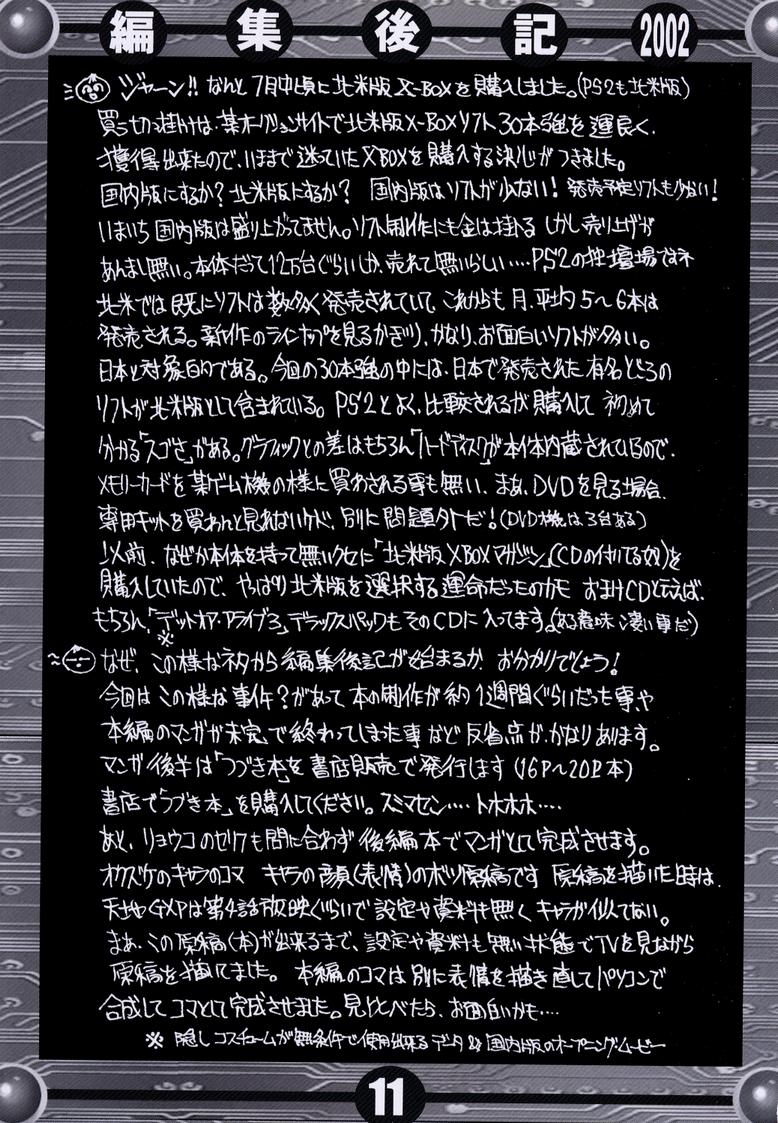 編集後記 2002
ジャーン!! なんと7月中頃に北米版X-BOXを購入しました。(PS2も北米版)
買う切っ掛けは、某オークションサイトで北米版X-BOXソフト30本強を運良く、
獲得出来たので、いままで迷っていたXBOXを購入する決心がつきました。
国内版にするか?北米版にするか? 国内版はソフトが少ない!発売予定ソフトも少ない!
いまいち国内版は盛り上がってません。ソフト制作にも金は掛る しかし売り上げが
あんまし無い。本体だって12万台ぐらいしか、売れて無いらしい‥‥PS2の独壇場ですネ
北米では既にソフトは数多く発売されていて、これからも月、平均5〜6本は
発売される。新作のラインナップを見るかぎり、かなり、お面白いソフトが多い。
日本と対象的である。今回の30本強の中には、日本で発売された有名どころの
ソフトが北米版として含まれている。PS2とよく比較されるが購入して 初めて
分かる「スゴさ」がある。グラフィックとの差はもちろん「ハードディスク」が本体内蔵されているので、
メモリーカードを某ゲーム機の様に買わされる事も無い、まあ、DVDを見る場合、
専用キットを買わんと見れないケド、別に問題外だ!(DVD機は3台ある)
以前、なぜか本体を持って無いクセに「北米版XBOXマガジン」(CDの付いてる奴)を
購入していたので、やっぱり北米版を選択する運命だったのかも おまけCDと云えば、
もちろん「デットオア・アライブ3」デラックスパックもそのCDに入ってます。(ある意味凄い事だ)
※
なぜ、この様なネタから編集後記が始まるか お分かりでしょう!
今回はこの様な事件?があって本の制作が約1週間ぐらいだった事や
本編のマンガが未完で終わってしまった事など反省点が、かなりあります。
マンガ後半は「つづき本」を書店販売で発行します(16P〜20P本)
書店で「つづき本」を購入してください。スミマセン‥‥トホホホ‥‥
あと、リョウコのゼクも間に合わず後編本でマンガとして完成させます。
オクヅケのキャラのコマ キャラの顔(表情)のボツ原稿です 原稿を描いた時は、
天地GXPは第4話放映ぐらいで設定や資料も無く キャラが似てない。
まあ、この原稿(本)が出来るまで、設定や資料も無い状態でTVを見ながら
原稿を描いてました。 本編のコマは別に表情を描き直してパソコンで
合成してコマとして完成させました。見比べたら、お面白いかも‥‥
※ 隠しコスチュームが無条件で使用出来るデータ&国内版のオープニングムービー
11